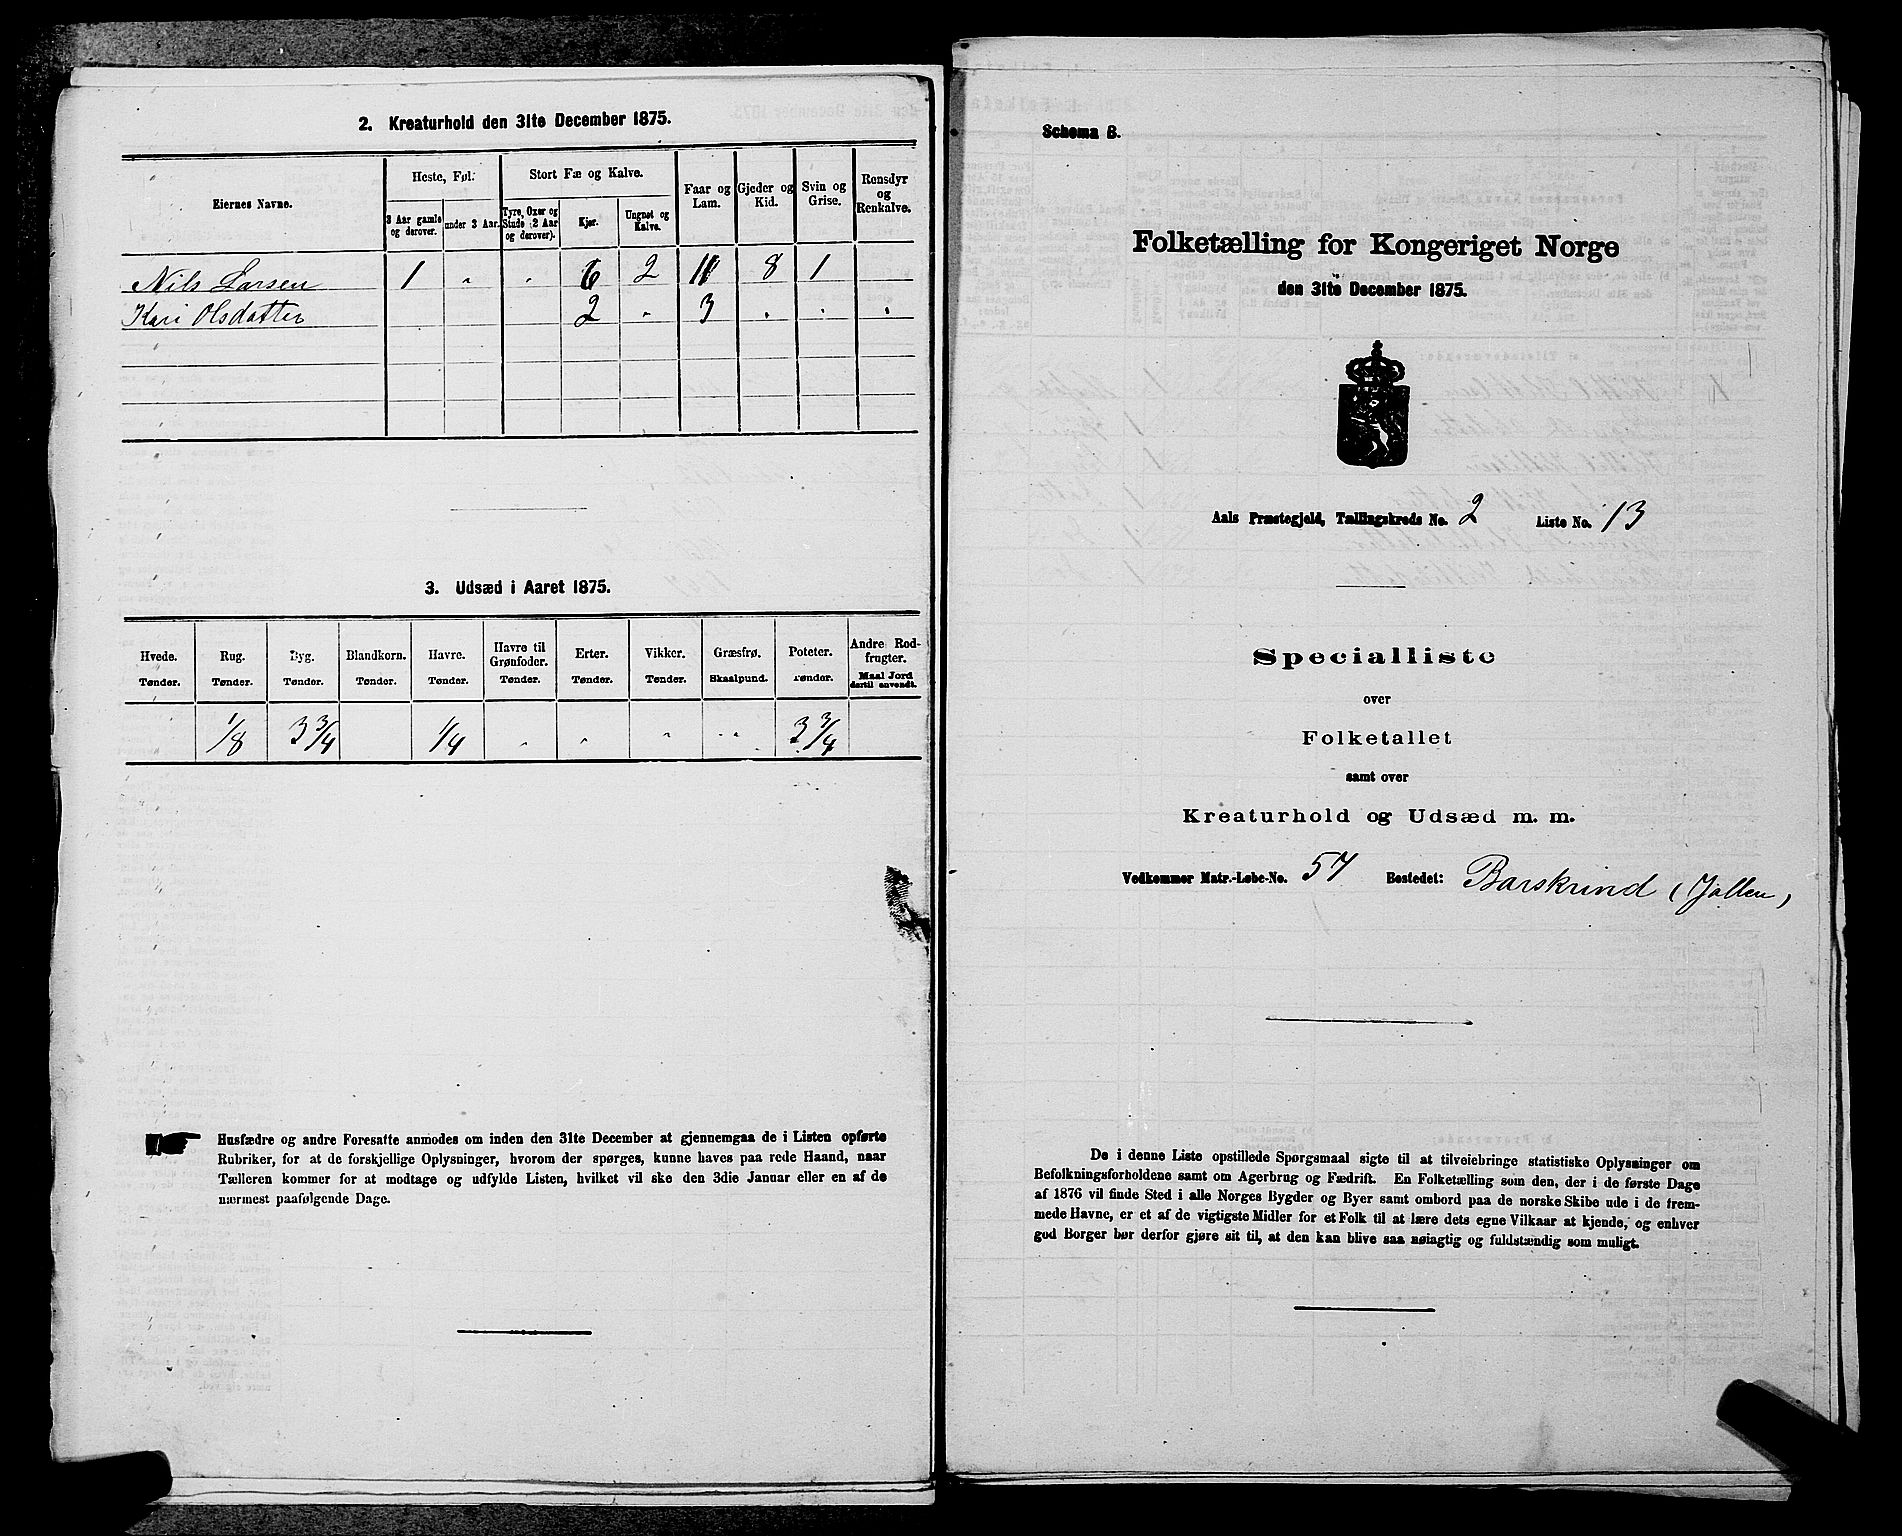 2. Kreaturhold den 31te December 1875.
Eiernes Navne.
Heste, Føl.
Stort Fæ og Kalve.
Faar og Lam.
Gjeder og Kid.
Svin og Grise.
Rensdyr og Renkalve.
3 Aar gamle og derover.
under 3 Aar.
Tyre, Oxer og Stude (2 Aar og derover).
Kjør.
Ungnøt og Kalve.
Nils Larsen 1 " " 6 2 11 8 1
Kari Olsdatter 2 " 3 " " "
3. Udsæd i Aaret 1875.
Hvede. Rug. Byg. Blandkorn. Havre. Havre til Grønfoder. Erter. Vikker. Græsfrø. Poteter. Andre Rodfrugter.
Tønder. Tønder. Tønder. Tønder. Tønder. Tønder. Tønder. Tønder. Skaalpund. Tønder. Maal Jord dertil anvendt.
1/8 3 3/4 1/4 " " " " 3 3/4
Husfædre og andre Foresatte anmodes om inden den 31te December at gjennemgaa de i Listen opførte
Rubriker, for at de forskjellige Oplysninger, hvorom der spørges, kunne haves paa rede Haand, naar
Tælleren kommer for at modtage og udfylde Listen, hvilket vil ske den 3die Januar eller en af de
nærmest paafølgende Dage.
Schema B.
Folketælling for Kongeriget Norge
den 31te December 1875.
Aals Præstegjeld, Tællingskreds No. 2 Liste No. 13
Specialliste
over
Folketallet
samt over
Kreaturhold og Udsæd m. m.
Vedkommer Matr.-Løbe-No. 57 Bostedet: Barskrind (Jallen)
De i denne Liste opstillede Spørgsmaal sigte til at tilveiebringe statistiske Oplysninger om
Befolkningsforholdene samt om Agerbrug og Fædrift. En Folketælling som den, der i de første Dage
af 1876 vil finde Sted i alle Norges Bygder og Byer samt ombord paa de norske Skibe ude i de frem-
mede Havne, er et af de vigtigste Midler for et Folk til at lære dets egne Vilkaar at kjende, og enhver
god Borger bør derfor gjøre sit til, at den kan blive saa nøiagtig og fuldstændig som muligt.